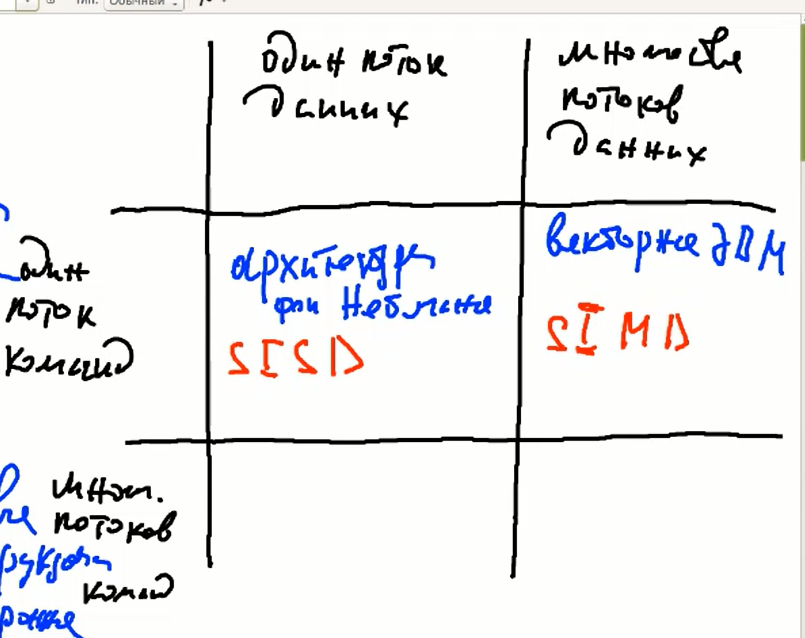 Тип: Обычный
один поток
данных
множества
потоков
данных
один
поток
команд
архитектура
фон Неймана
SISD
векторные ЭВМ
SIMD
множ.
потоков
команд